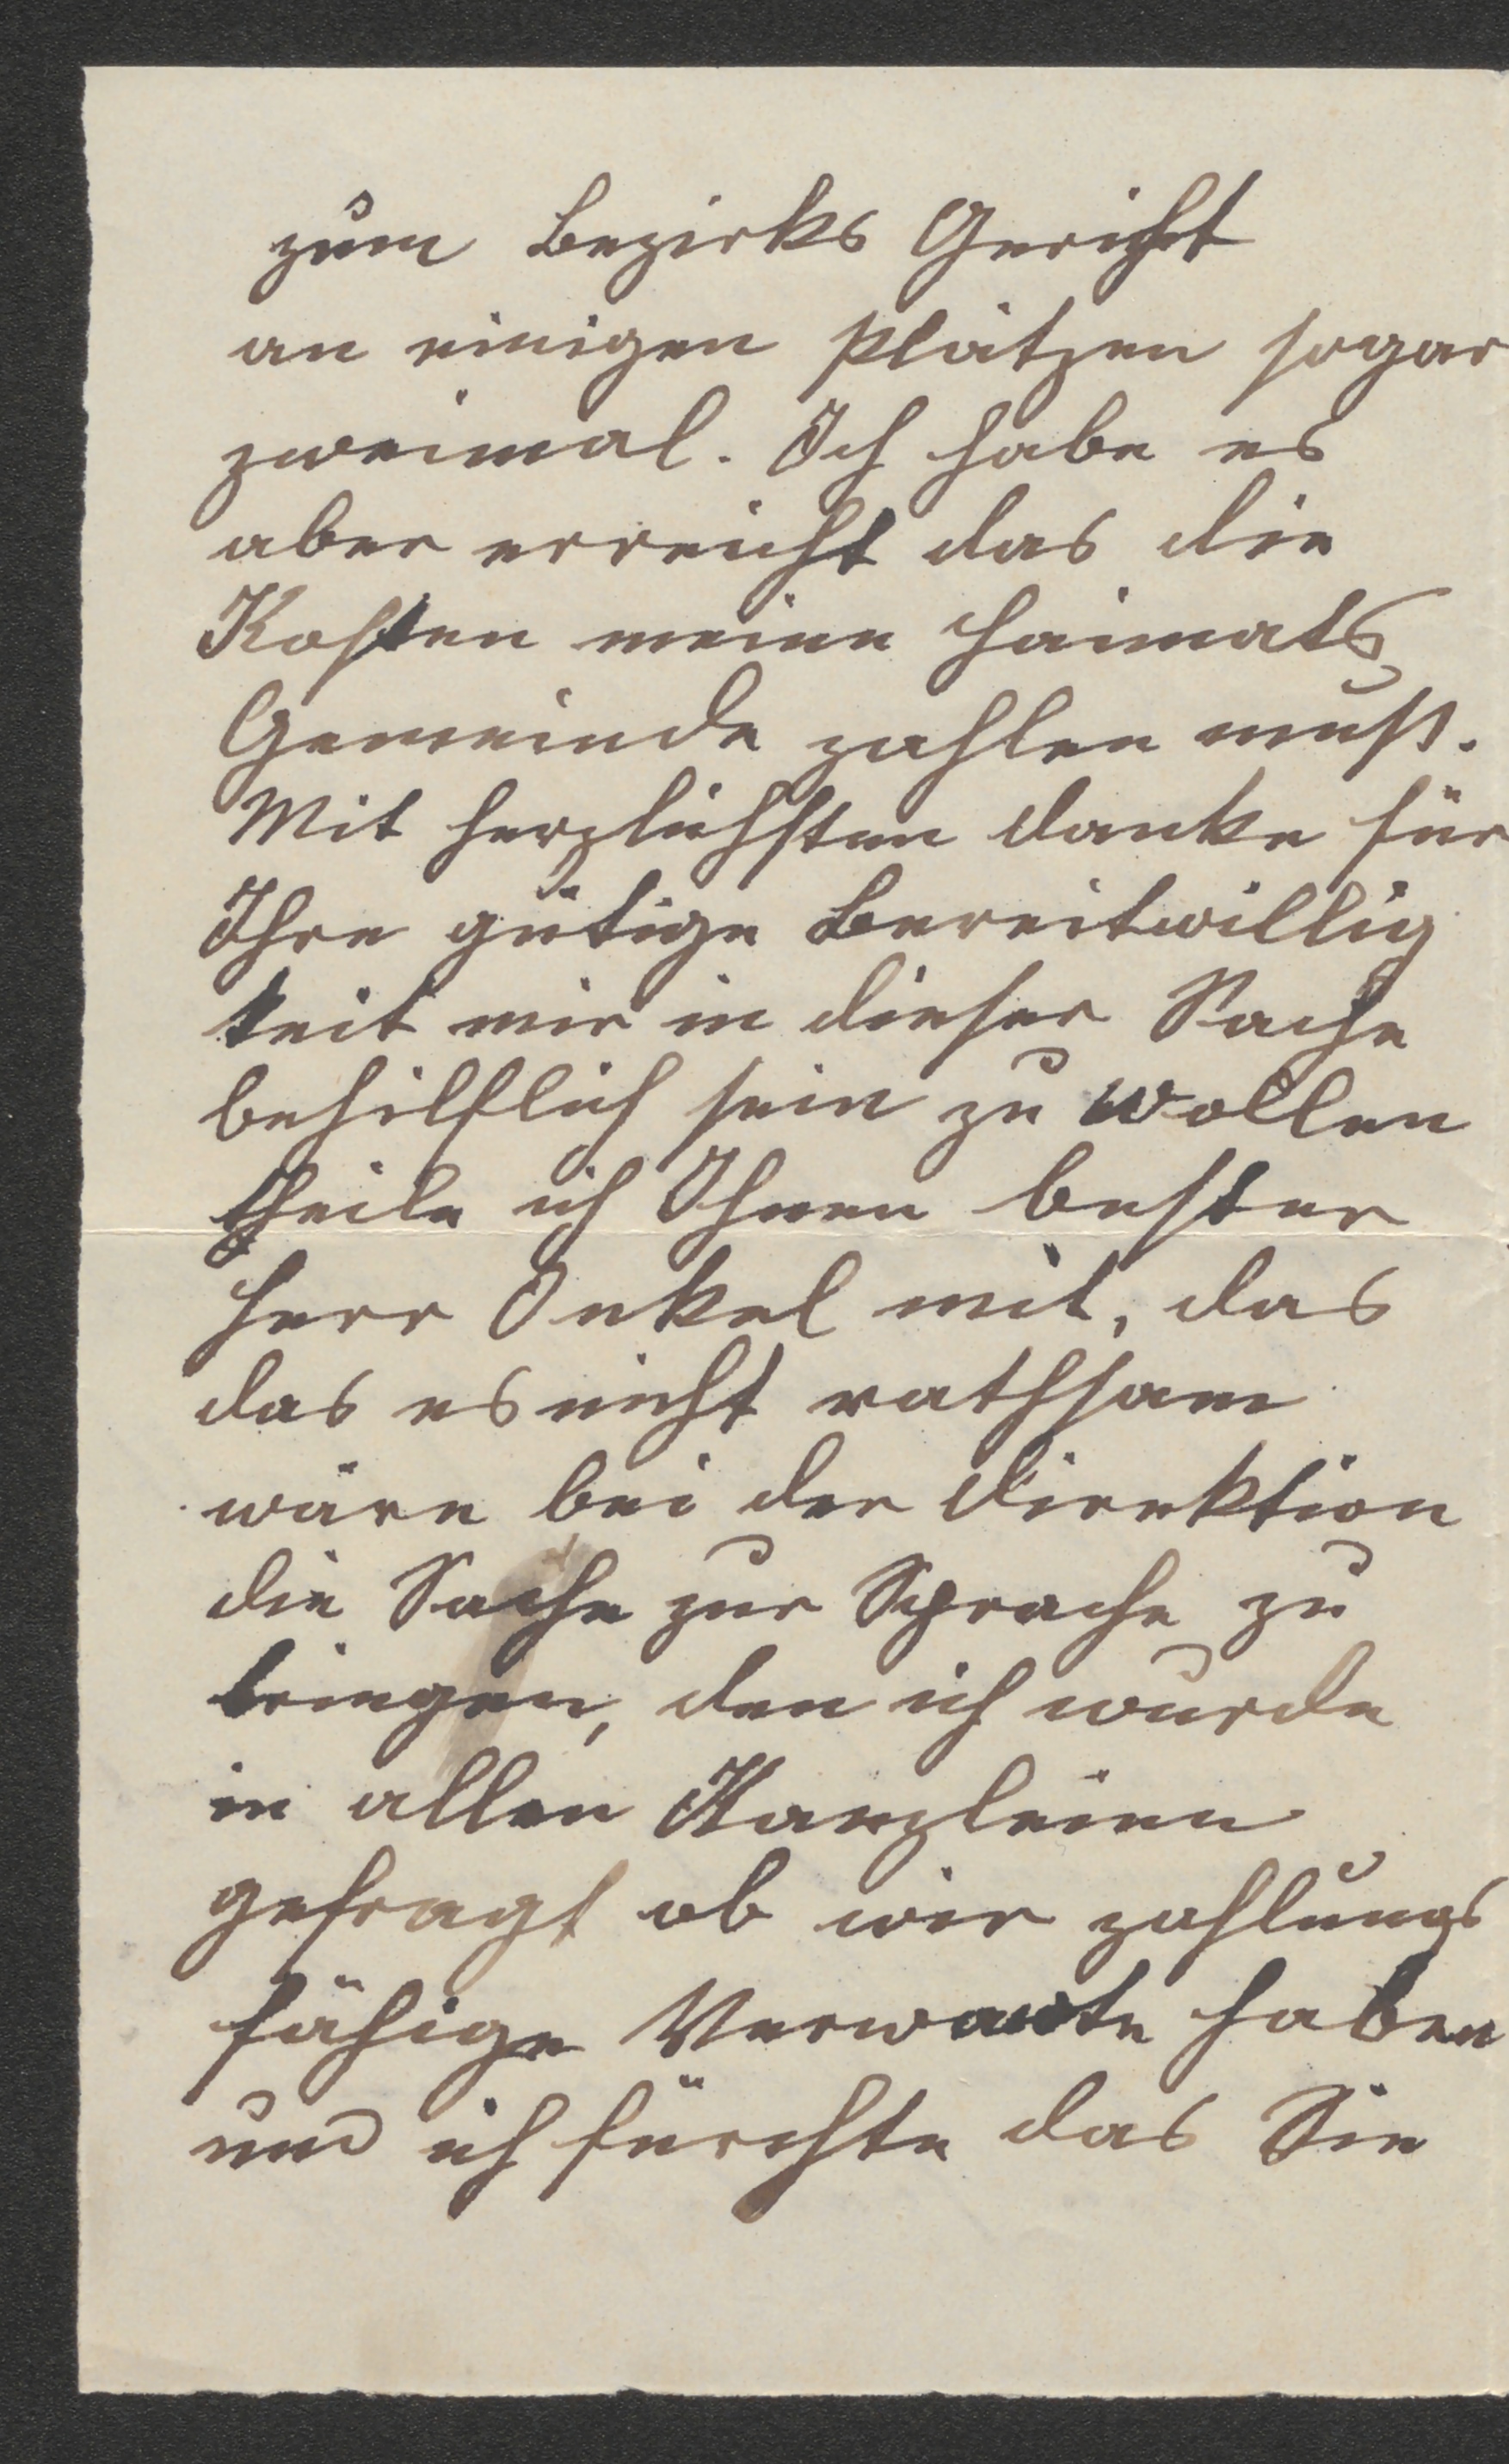 zum Bezirks Gericht
an einigen Plätzen sogar
zweimal. Ich habe es
aber erreicht das die
Kosten meine Haimats
Gemeinde zahlen muß.
Mit herzlichsten danke für
Ihre gütige Bereitwillig
keit mir in dieser Sache
behilflich sein zu wollen
theile ich Ihnen bester
Herr Onkel mit, das
das es nicht rathsam
wäre bei der Direktion
die Sache zur Sprache zu
bringen, den ich wurde
in allen Kanzleien
gefragt ob wir zahlungs
fähige Verwante haben
und ich fürchte das Sie